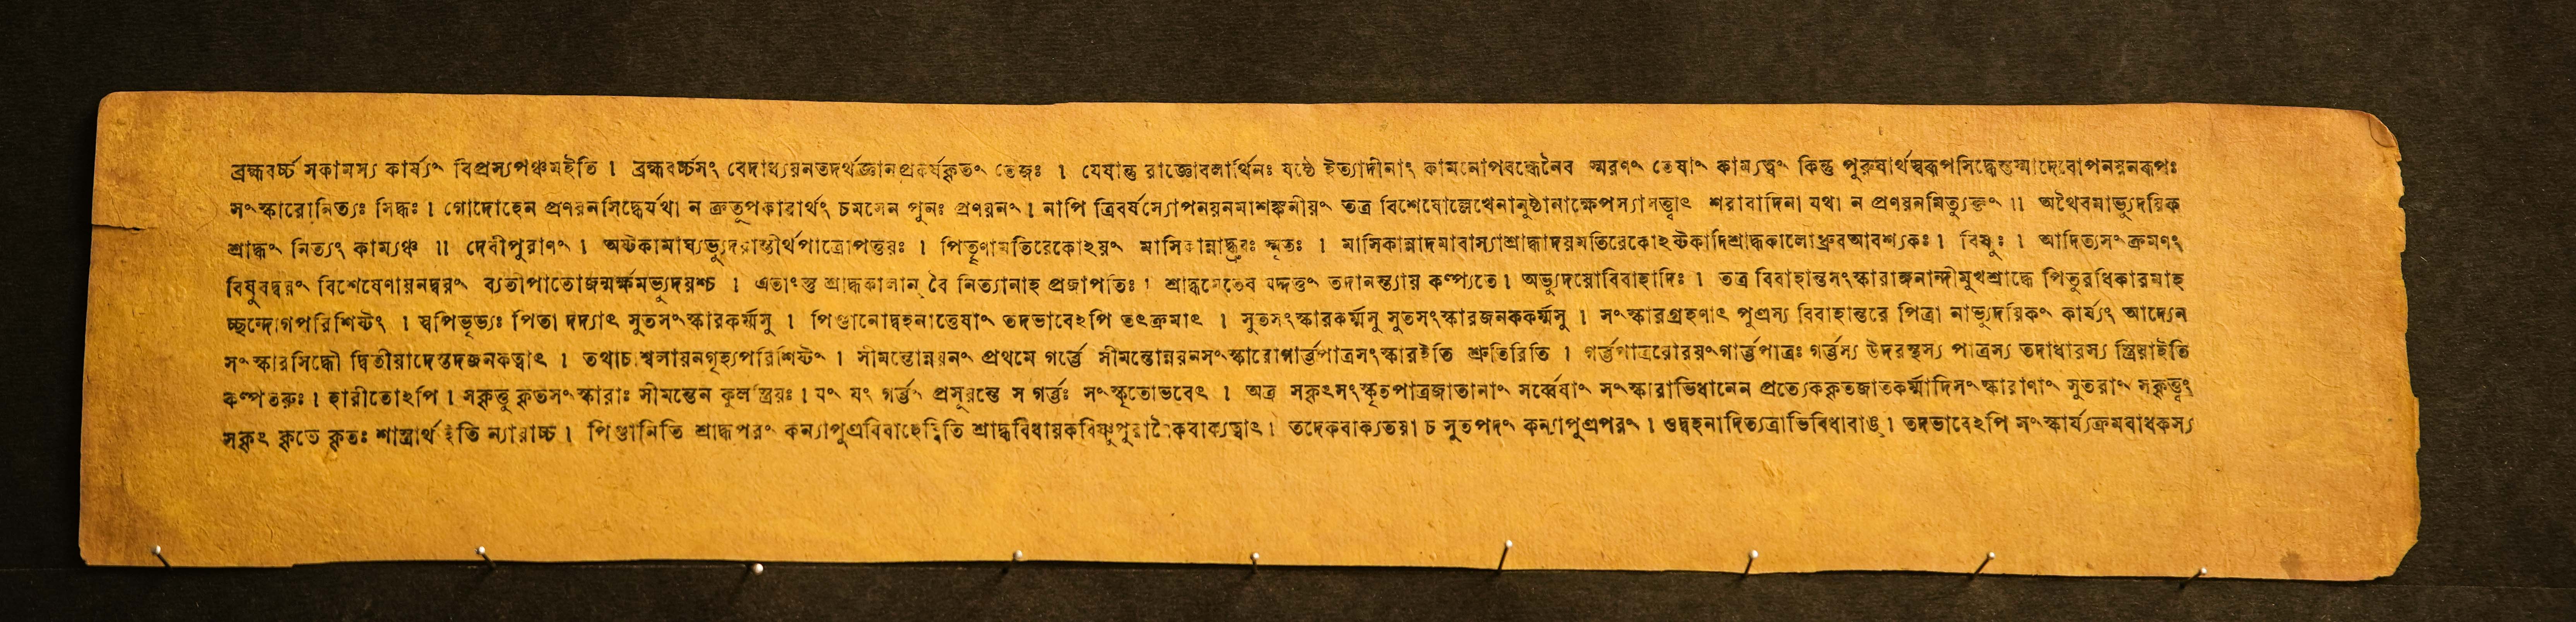 ব্রহ্মবর্চ্চসকামস্য কার্য্যং বিপ্রস্যপঞ্চমইতি । ব্রহ্মবর্চ্চসং বেদাধ্যয়নতদর্থজ্ঞানপ্রকর্ষকৃতং তেজঃ । যেষান্তু রাজ্ঞোবলার্থিনঃ ষষ্ঠে ইত্যাদীনাং কামনোপবন্ধেনৈব স্মরণং তেষাং কাম্যত্বং কিন্তু পুরুষার্থস্বরূপসিদ্ধেস্তস্মাদেবোপনয়নরূপঃ
সংস্কারোনিত্যঃ সিদ্ধঃ । গোদোহেন প্রণয়নসিদ্ধের্যথা ন ক্রতূপকারার্থং চমসেন পুনঃ প্রণয়নং । নাপি ত্রিবর্ষস্যোপনয়নমাশঙ্কনীয়ং তত্র বিশেষোল্লেখেনানুষ্ঠানাক্ষেপস্যাসত্ত্বাৎ শরাবাদিনা যথা ন প্রণয়নমিত্যুক্তং ॥ অথৈবমাভ্যুদয়িক
শ্রাদ্ধং নিত্যং কাম্যঞ্চ ॥ দেবীপুরাণং । অষ্টকামাঘ্যভ্যুদয়াস্তীর্থপাত্রোপত্তয়ঃ । পিতৄণামতিরেকোঽয়ং মাসিকান্নাদ্ধ্রুবঃ স্মৃতঃ । মাসিকান্নাদমাবাস্যাশ্রাদ্ধাদয়মতিরেকোঽষ্টকাদিশ্রাদ্ধকালোধ্রুবআবশ্যকঃ । বিষ্ণুঃ । আদিত্যসংক্রমণং
বিষুবদ্বয়ং বিশেষেণায়নদ্বয়ং ব্যতীপাতোজন্মর্ক্ষমভ্যুদয়শ্চ । এতাংস্তু শ্রাদ্ধকালান্ বৈ নিত্যানাহ প্রজাপতিঃ । শ্রাদ্ধমেতেষ যদ্দত্তং তদানন্ত্যায় কল্প্যতে । অভ্যুদয়োবিবাহাদিঃ । তত্র বিবাহান্তসংস্কারাঙ্গনান্দীমুখশ্রাদ্ধে পিতুরধিকারমাহ
চ্ছন্দোগপরিশিষ্টং । স্বপিতৃভ্যঃ পিতা দদ্যাৎ সুতসংস্কারকর্ম্মসু । পিণ্ডানোদ্বহনাত্তেষাং তদভাবেঽপি তৎক্রমাৎ । সুতসংস্কারকর্ম্মসু সুতসংস্কারজনককর্ম্মসু । সংস্কারগ্রহণাৎ পুত্রস্য বিবাহান্তরে পিত্রা নাভ্যুদয়িকং কার্য্যং আদ্যেন
সংস্কারসিদ্ধৌ দ্বিতীয়াদেস্তদজনকত্বাৎ । তথাচাশ্বলায়নগৃহ্যপরিশিষ্টং । সীমন্তোন্নয়নং প্রথমে গর্ব্ভে সীমন্তোন্নয়নসংস্কারোগার্ব্ভপাত্রসংস্কারইতি শ্রুতিরিতি । গর্ব্ভপাত্রয়োরয়ংগার্ব্ভপাত্রঃ গর্ব্ভস্য উদরস্থস্য পাত্রস্য তদাধারস্য স্ত্রিয়াইতি
কল্পতরুঃ । হারীতোঽপি । সকৃত্তু কৃতসংস্কারাঃ সীমন্তেন কুলস্ত্রিয়ঃ । যং যং গর্ব্ভং প্রসূয়ন্তে স গর্ব্ভঃ সংস্কৃতোভবেৎ । অত্র সকৃৎসংস্কৃতপাত্রজাতানাং সর্ব্বেষাং সংস্কারাভিধানেন প্রত্যেককৃতজাতকর্ম্মাদিসংস্কারাণাং সুতরাং সকৃত্ত্বং
সকৃৎ কৃতে কৃতঃ শাস্ত্রার্থ ইতি ন্যায়াচ্চ । পিণ্ডানিতি শ্রাদ্ধপরং কন্যাপুত্রবিবাহেষ্বিতি শ্রাদ্ধবিধায়কবিষ্ণুপুরাণৈকবাক্যত্বাৎ । তদেকবাক্যতয়া চ সুতপদং কন্যাপুত্রপরং । ওদ্বহনাদিত্যত্রাভিবিধাবাঙ্ । তদভাবেঽপি সংস্কার্য্যক্রমবাধকস্য